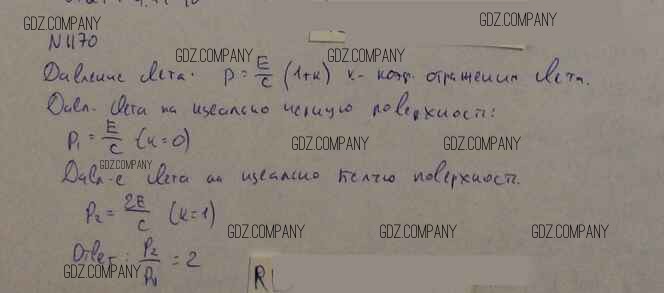 GDZ.COMPANY
GDZ.COMPANY
N 1170
GDZ.COMPANY GDZ.COMPANY
Давление света. P = E/c (1+к) к - коэф. отражения света.
Давл. света на идеально черную поверхность:
P₁ = E/c (к=0)
GDZ.COMPANY GDZ.COMPANY
GDZ.COMPANY
Давл-е света на идеально белую поверхность.
P₂ = 2E/c (к=1)
GDZ.COMPANY GDZ.COMPANY GDZ.COMPANY
Ответ: P₂/P₁ = 2
GDZ.COMPANY
R